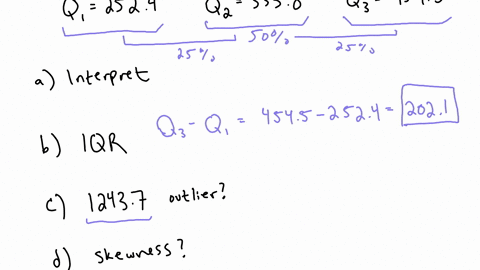 Q₁ = 252.4 Q₂ = Q₃ =
25% 50% 25%
a) Interpret
b) IQR Q₃ - Q₁ = 454.5 - 252.4 = 202.1
c) 1243.7 outlier?
d) skewness?